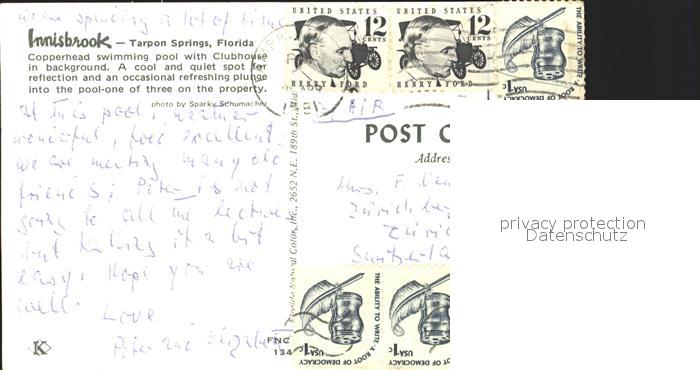 we are spending a lot of time
Innisbrook — Tarpon Springs, Florida
Copperhead swimming pool with Clubhouse
in background. A cool and quiet spot for
reflection and an occasional refreshing plunge
into the pool-one of three on the property.
photo by Sparky Schumacher
at this pool, weather
wonderful, food excellent.
we are meeting many old
friends; Peter is not
going to all the lectures
but taking it a bit
easy, Hope you are
well.
Love
Peter and Elizabeth
K
Natural Color, Inc., 2652 N.E. 189th St.,
FNC
134
UNITED STATES
12 CENTS
HENRY FORD
UNITED STATES
12 CENTS
HENRY FORD
THE ABILITY TO WRITE·A ROOT OF DEMOCRACY
USA 1c
AIR
POST C
Addres
Mrs. F.
Zürich
Zürich
THE ABILITY TO WRITE·A ROOT OF DEMOCRACY
USA 1c
USA 1c
privacy protection
Datenschutz